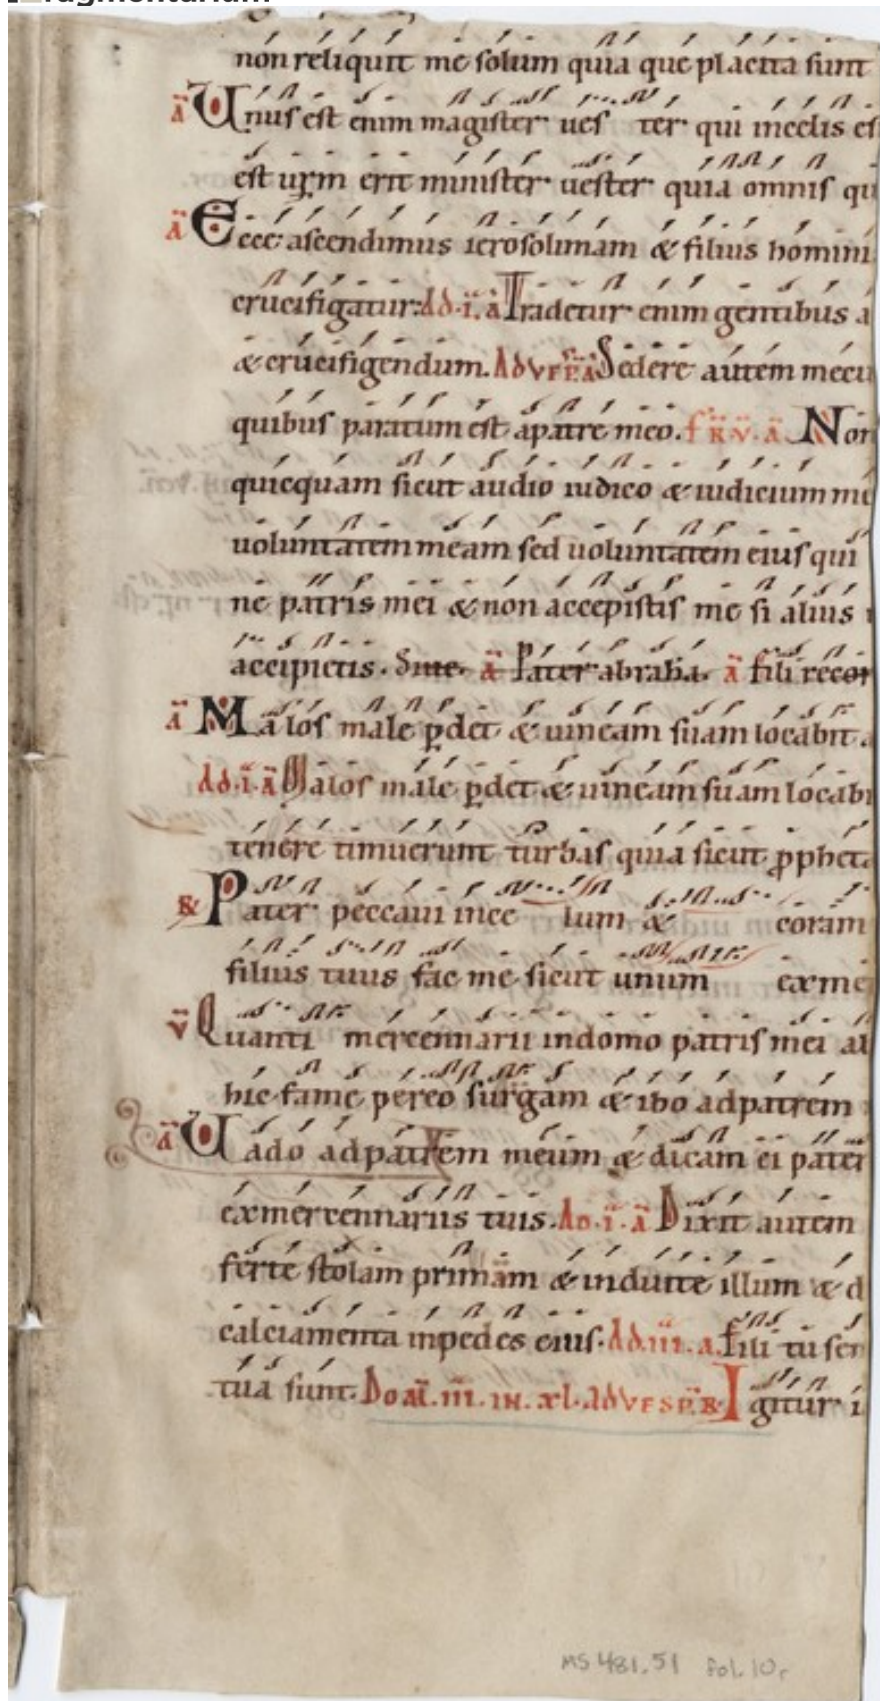 non reliquit me solum quia que placita sunt
ā Unus est enim magister ues ter qui incelis es
est ur̄m erit minister uester quia omnis qu
ā Ecce ascendimus ierosolimam & filius homini
crucifigatur. Ad .i. ā Tradetur enim gentibus a
& crucifigendum. Sedere autem mecu
quibus paratum est apatre meo. f R̄ v̄ ā Non
quicquam sicut audio iudico & iudicium me
uoluntatem meam sed uoluntatem eius qui
ne patris mei & non accepistis me si alius
accipietis. ā Pater abrahā. ā fili recor
ā Malos male p̱det & uineam suam locabit a
Ad .i. ā Malos male p̱det & uineam suam locabi
tenere timuerunt turbas quia sicut p̄pheta
R Pater peccaui ince lum & coram
filius tuus fac me sicut unum exme
v̄ Quanti mercennarii indomo patris mei ab
hic fame pereo surgam & ibo adpatrem
ā Uado adpatrem meum & dicam ei pater
exmercennariis tuis. Ad .i. ā Dixit autem
ferte stolam primam & induite illum & d
calciamenta inpedes eius. Ad .iii. a. Fili tu sem
tua sunt. Doīī. iii. IN. xl. AdVESP. R Igitur i
MS 481.51 fol. 10r